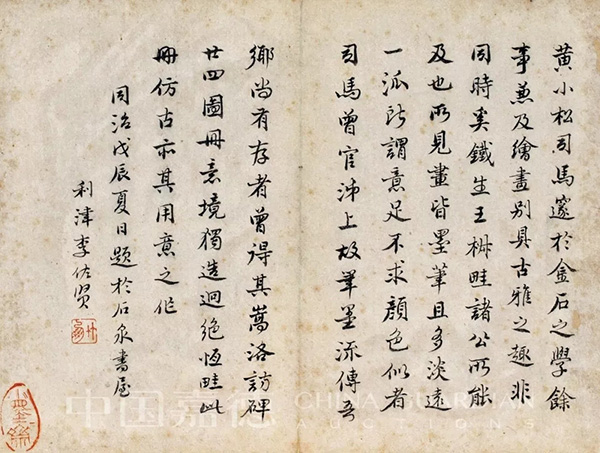 黃小松司馬邃於金石之學餘
事兼及繪畫别具古雅之趣非
同時奚鐵生王椒畦諸公所能
及也所見畫皆墨筆且多淡遠
一派所謂意足不求顔色似者
司馬曾官泲上故筆墨流傳吾
鄉尚有存者曾得其嵩洛訪碑
廿四圖冊意境獨造迥絕恆畦此
冊仿古亦其用意之作
同治戊辰夏日題於石泉書屋
利津李佐贤
中国嘉德 CHINA GUARDIAN
AUCTIONS